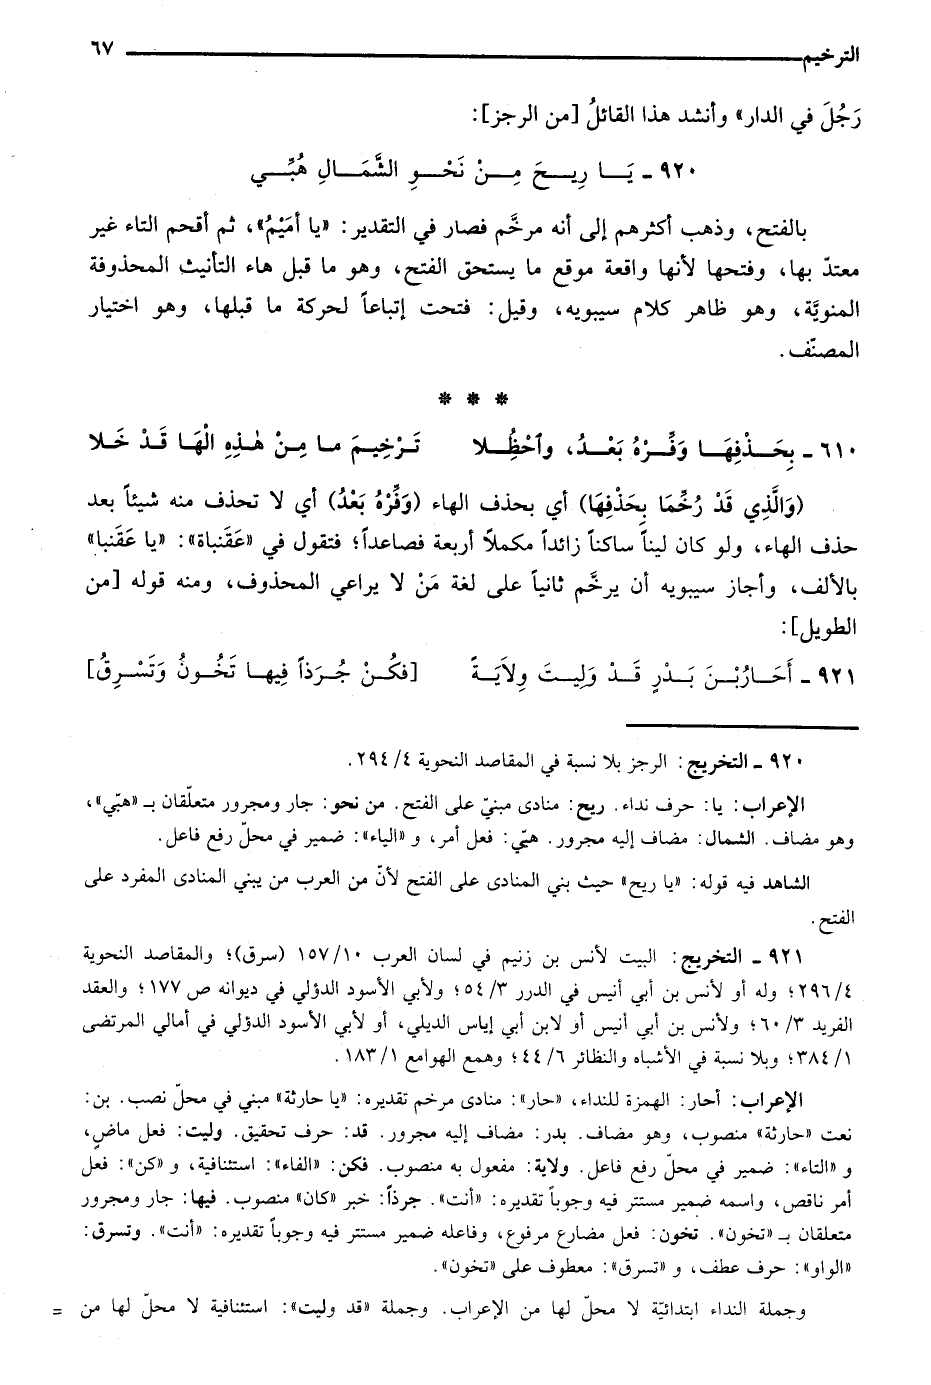 الترخيم ٦٧
رَجُلَ في الدار» وأنشد هذا القائلُ [من الرجز]:
٩٢٠ ـ يَـــا رِيـــحَ مِـــنْ نَحْـــوِ الشَّمَـــالِ هُبِّـــي
بالفتح، وذهب أكثرهم إلى أنه مرخَّم فصار في التقدير: «يا أمَيْمُ»، ثم أقحم التاء غير
معتدّ بها، وفتحها لأنها واقعة موقع ما يستحق الفتح، وهو ما قبل هاء التأنيث المحذوفة
المنويَّة، وهو ظاهر كلام سيبويه، وقيل: فتحت إتباعاً لحركة ما قبلها، وهو اختيار
المصنّف.
* * *
٦١٠ ـ بِحَـــذْفِهَـــا وَفِّـــرْهُ بَعْـــدُ، وٱحْظُـــلا تَـرْخِيـمَ مـا مِـنْ هٰـذِهِ الْهَـا قَـدْ خَـلا
(وَالَّذِي قَدْ رُخِّمَا بِحَذْفِهَا) أي بحذف الهاء (وَفِّرْهُ بَعْدُ) أي لا تحذف منه شيئاً بعد
حذف الهاء، ولو كان ليناً ساكناً زائداً مكملاً أربعة فصاعداً؛ فتقول في «عَقَنباة»: «يا عَقَنبا»
بالألف، وأجاز سيبويه أن يرخَّم ثانياً على لغة مَنْ لا يراعي المحذوف، ومنه قوله [من
الطويل]:
٩٢١ ـ أَحَـــارُ بْـــنَ بَـــدْرٍ قَـــدْ وَلِيـــتَ وِلاَيَـــةً [فكُـــنْ جُـــرَذاً فِيهـــا تَخُـــونُ وَتَسْـــرِقُ]
٩٢٠ ـ التخريج: الرجز بلا نسبة في المقاصد النحوية ٤/ ٢٩٤.
الإعراب: يا: حرف نداء. ريح: منادى مبنيّ على الفتح. من نحو: جار ومجرور متعلّقان بـ «هبّي»،
وهو مضاف. الشمال: مضاف إليه مجرور. هبّي: فعل أمر، و «الياء»: ضمير في محلّ رفع فاعل.
الشاهد فيه قوله: «يا ريح» حيث بني المنادى على الفتح لأنّ من العرب من يبني المنادى المفرد على
الفتح.
٩٢١ ـ التخريج: البيت لأنس بن زنيم في لسان العرب ١٠/ ١٥٧ (سرق)؛ والمقاصد النحوية
٤/ ٢٩٦؛ وله أو لأنس بن أبي أنيس في الدرر ٣/ ٥٤؛ ولأبي الأسود الدؤلي في ديوانه ص ١٧٧؛ والعقد
الفريد ٣/ ٦٠؛ ولأنس بن أبي أنيس أو لابن أبي إياس الديلي، أو لأبي الأسود الدؤلي في أمالي المرتضى
١/ ٣٨٤؛ وبلا نسبة في الأشباه والنظائر ٦/ ٤٤؛ وهمع الهوامع ١/ ١٨٣.
الإعراب: أحار: الهمزة للنداء، «حار»: منادى مرخم تقديره: «يا حارثة» مبني في محلّ نصب. بن:
نعت «حارثة» منصوب، وهو مضاف. بدر: مضاف إليه مجرور. قد: حرف تحقيق. وليت: فعل ماضٍ،
و «التاء»: ضمير في محلّ رفع فاعل. ولاية: مفعول به منصوب. فكن: «الفاء»: استئنافية، و «كن»: فعل
أمر ناقص، واسمه ضمير مستتر فيه وجوباً تقديره: «أنت». جرذاً: خبر «كان» منصوب. فيها: جار ومجرور
متعلقان بـ «تخون». تخون: فعل مضارع مرفوع، وفاعله ضمير مستتر فيه وجوباً تقديره: «أنت». وتسرق:
«الواو»: حرف عطف، و «تسرق»: معطوف على «تخون».
وجملة النداء ابتدائيّة لا محلّ لها من الإعراب. وجملة «قد وليت»: استئنافية لا محلّ لها من =